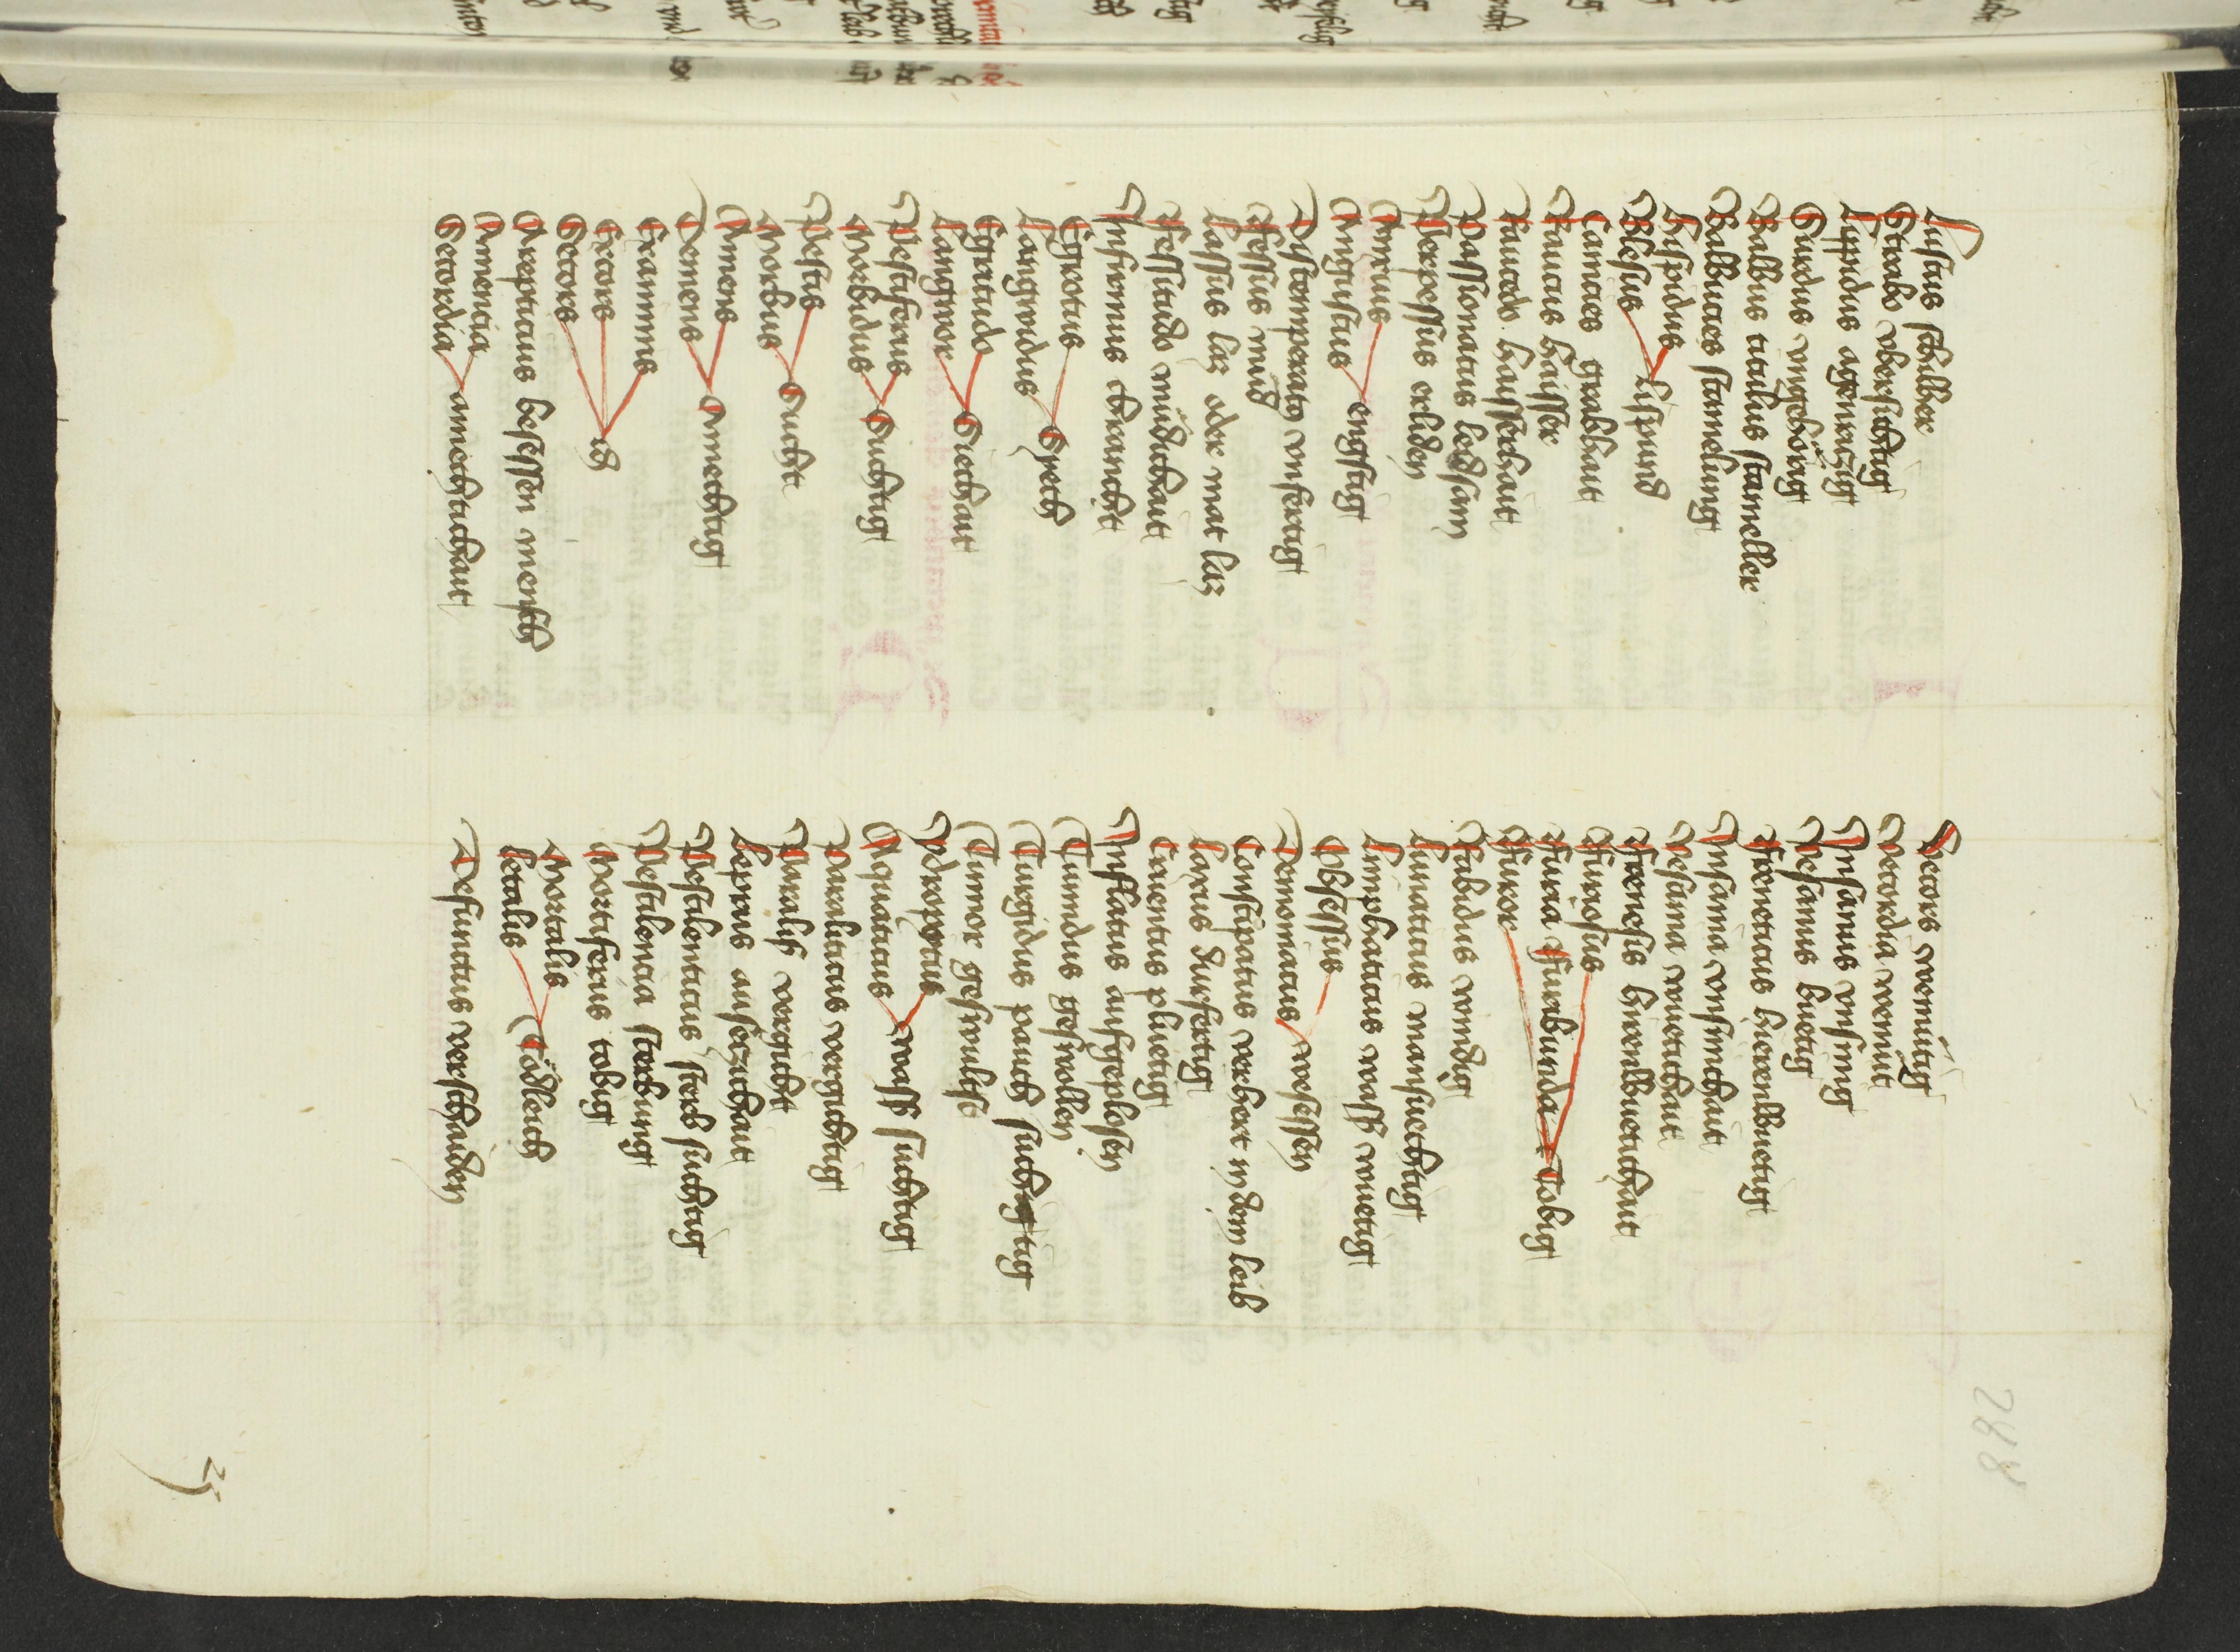 Luscus schilher
Strabo vbersichtig
Lippidus agenuczig
Surdus vngehörig
Balbus titulus stameller
Balbucies stamelung
Hispidus
Blesus lispund
Camcies grabhait
Raucus haisser
Raucedo haisserhait
Passionatus leidsam
Perpessus erliden
Anxius
Angustus engstig
Distemperatus vnfertig
Fessus müd
Lassus laz oder mat laz
Fessitudo müdichait
Infirmus chranckt
Egrotus
Langwidus Syech
Egritudo
Langwor Siechait
Pestiferus
Morbidus Suchtig
Pestis
Morbus Sucht
Amens
Demens Amechtig
Exanimis
Excors
Secors id
Arrepticius besessen mensch
Amencia
Secordia amechtichait
Vecors wemütig
Vecordia wemüt
Insanus vnsinig
Vesanus buetig
Freneticus hierenbuetig
Insania vnsinichait
Vesania wuetichait
Frenesis hierenbuetichait
Furiosus
Furia Furibunda Tobig
Furor
Rabidus windig
Lunaticus mansuechtig
Limphaticus wass wuetig
Obsessus
Demoniacus wesessen
Constipatus verhert in dem leib
Laxus durfertig
Cruentus pluetig
Inflatus aufgeplosen
Tumidus geswollen
Turgidus pauch suchtig
Tumor geswulst
Ydropicus
Aquaticus wass suchtig
Paraliticus vergichtig
Paralis vergicht
Lepra auserzichait
Pestilenticus sterb suchtig
Pestilencia sterbung
Mortiferus tobig
Mortalis
Letalis Tödleich
Defunctus verschaiden
288